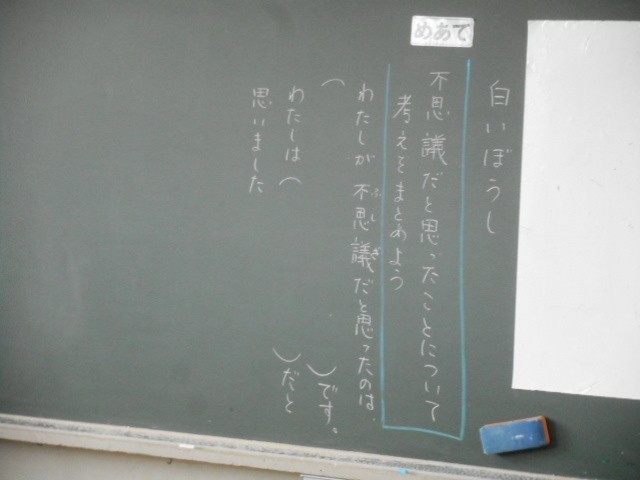 白いぼうし
めあて
不思議だと思ったことについて
考えをまとめよう
わたしが不思議だと思ったのは、
ふしぎ
（　　　）です。
わたしは（　　　）だと
思いました